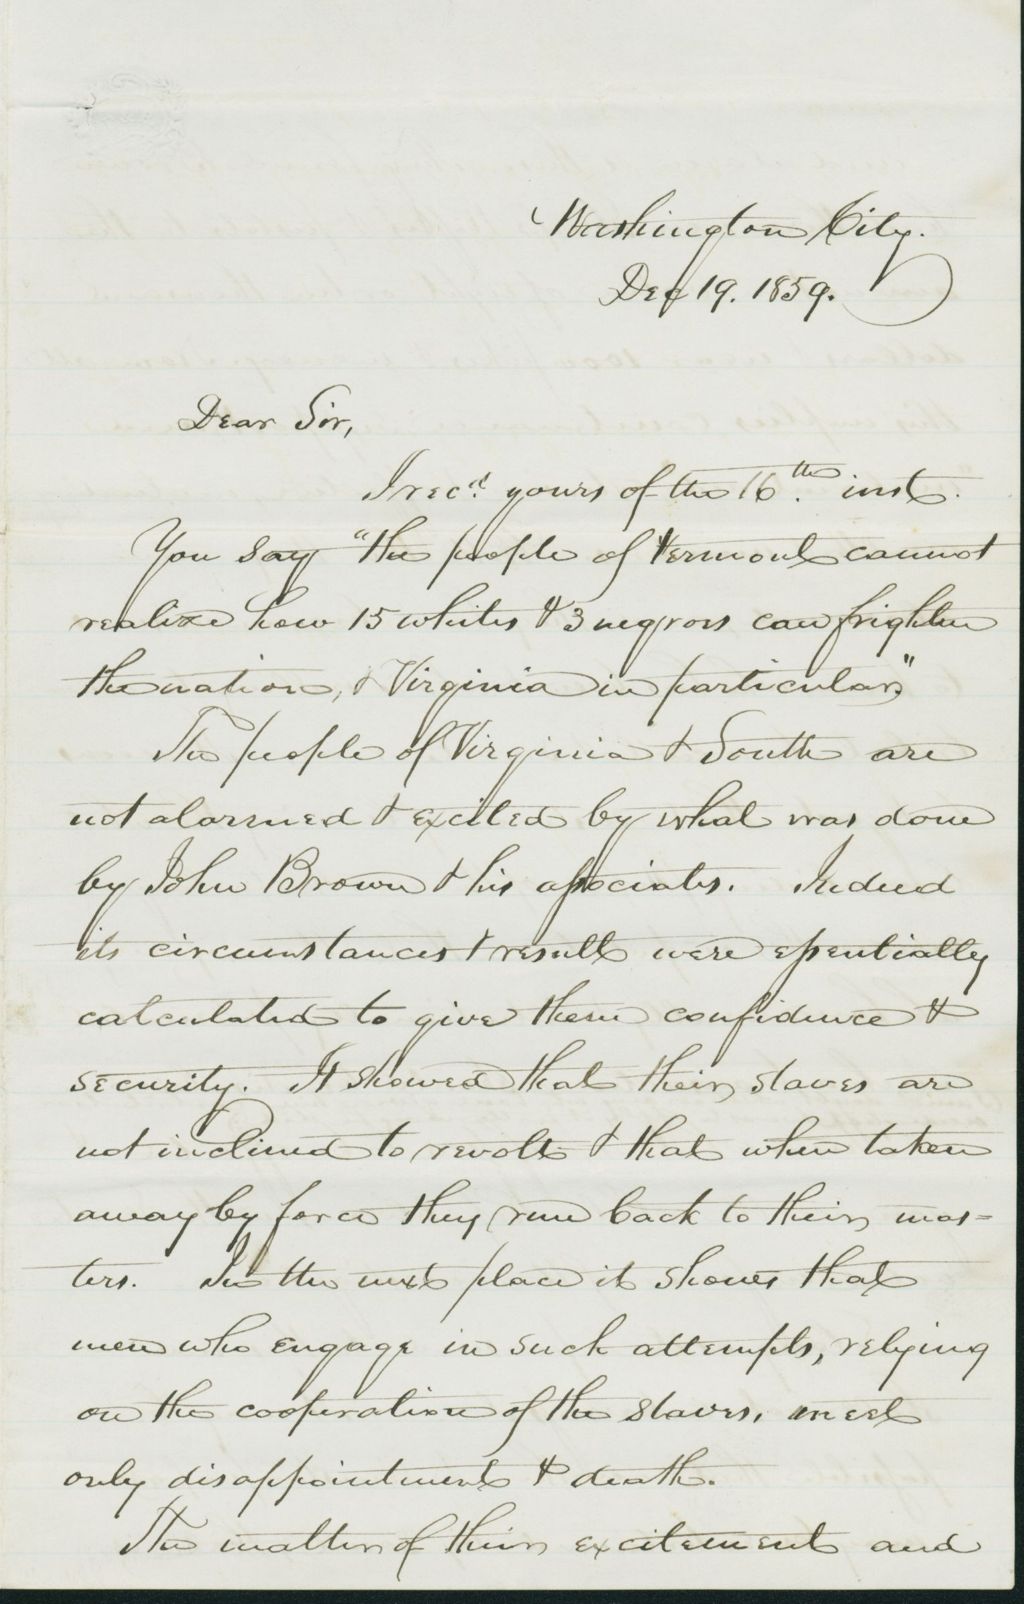 Washington City.
Dec 19. 1859.
Dear Sir,
I recd. yours of the 16th. inst.
You say "the people of Vermont cannot
realize how 15 whites & 3 negroes can frighten
the nation, & Virginia in particular,"
The people of Virginia & South are
not alarmed & excited by what was done
by John Brown & his associates. Indeed
its circumstances & results were essentially
calculated to give them confidence &
security. It showed that their slaves are
not inclined to revolt & that when taken
away by force they run back to their mas-
ters. In the next place it shows that
men who engage in such attempts, relying
on the cooperation of the slaves, meet
only disappointment & death.
The matter of their excitement and